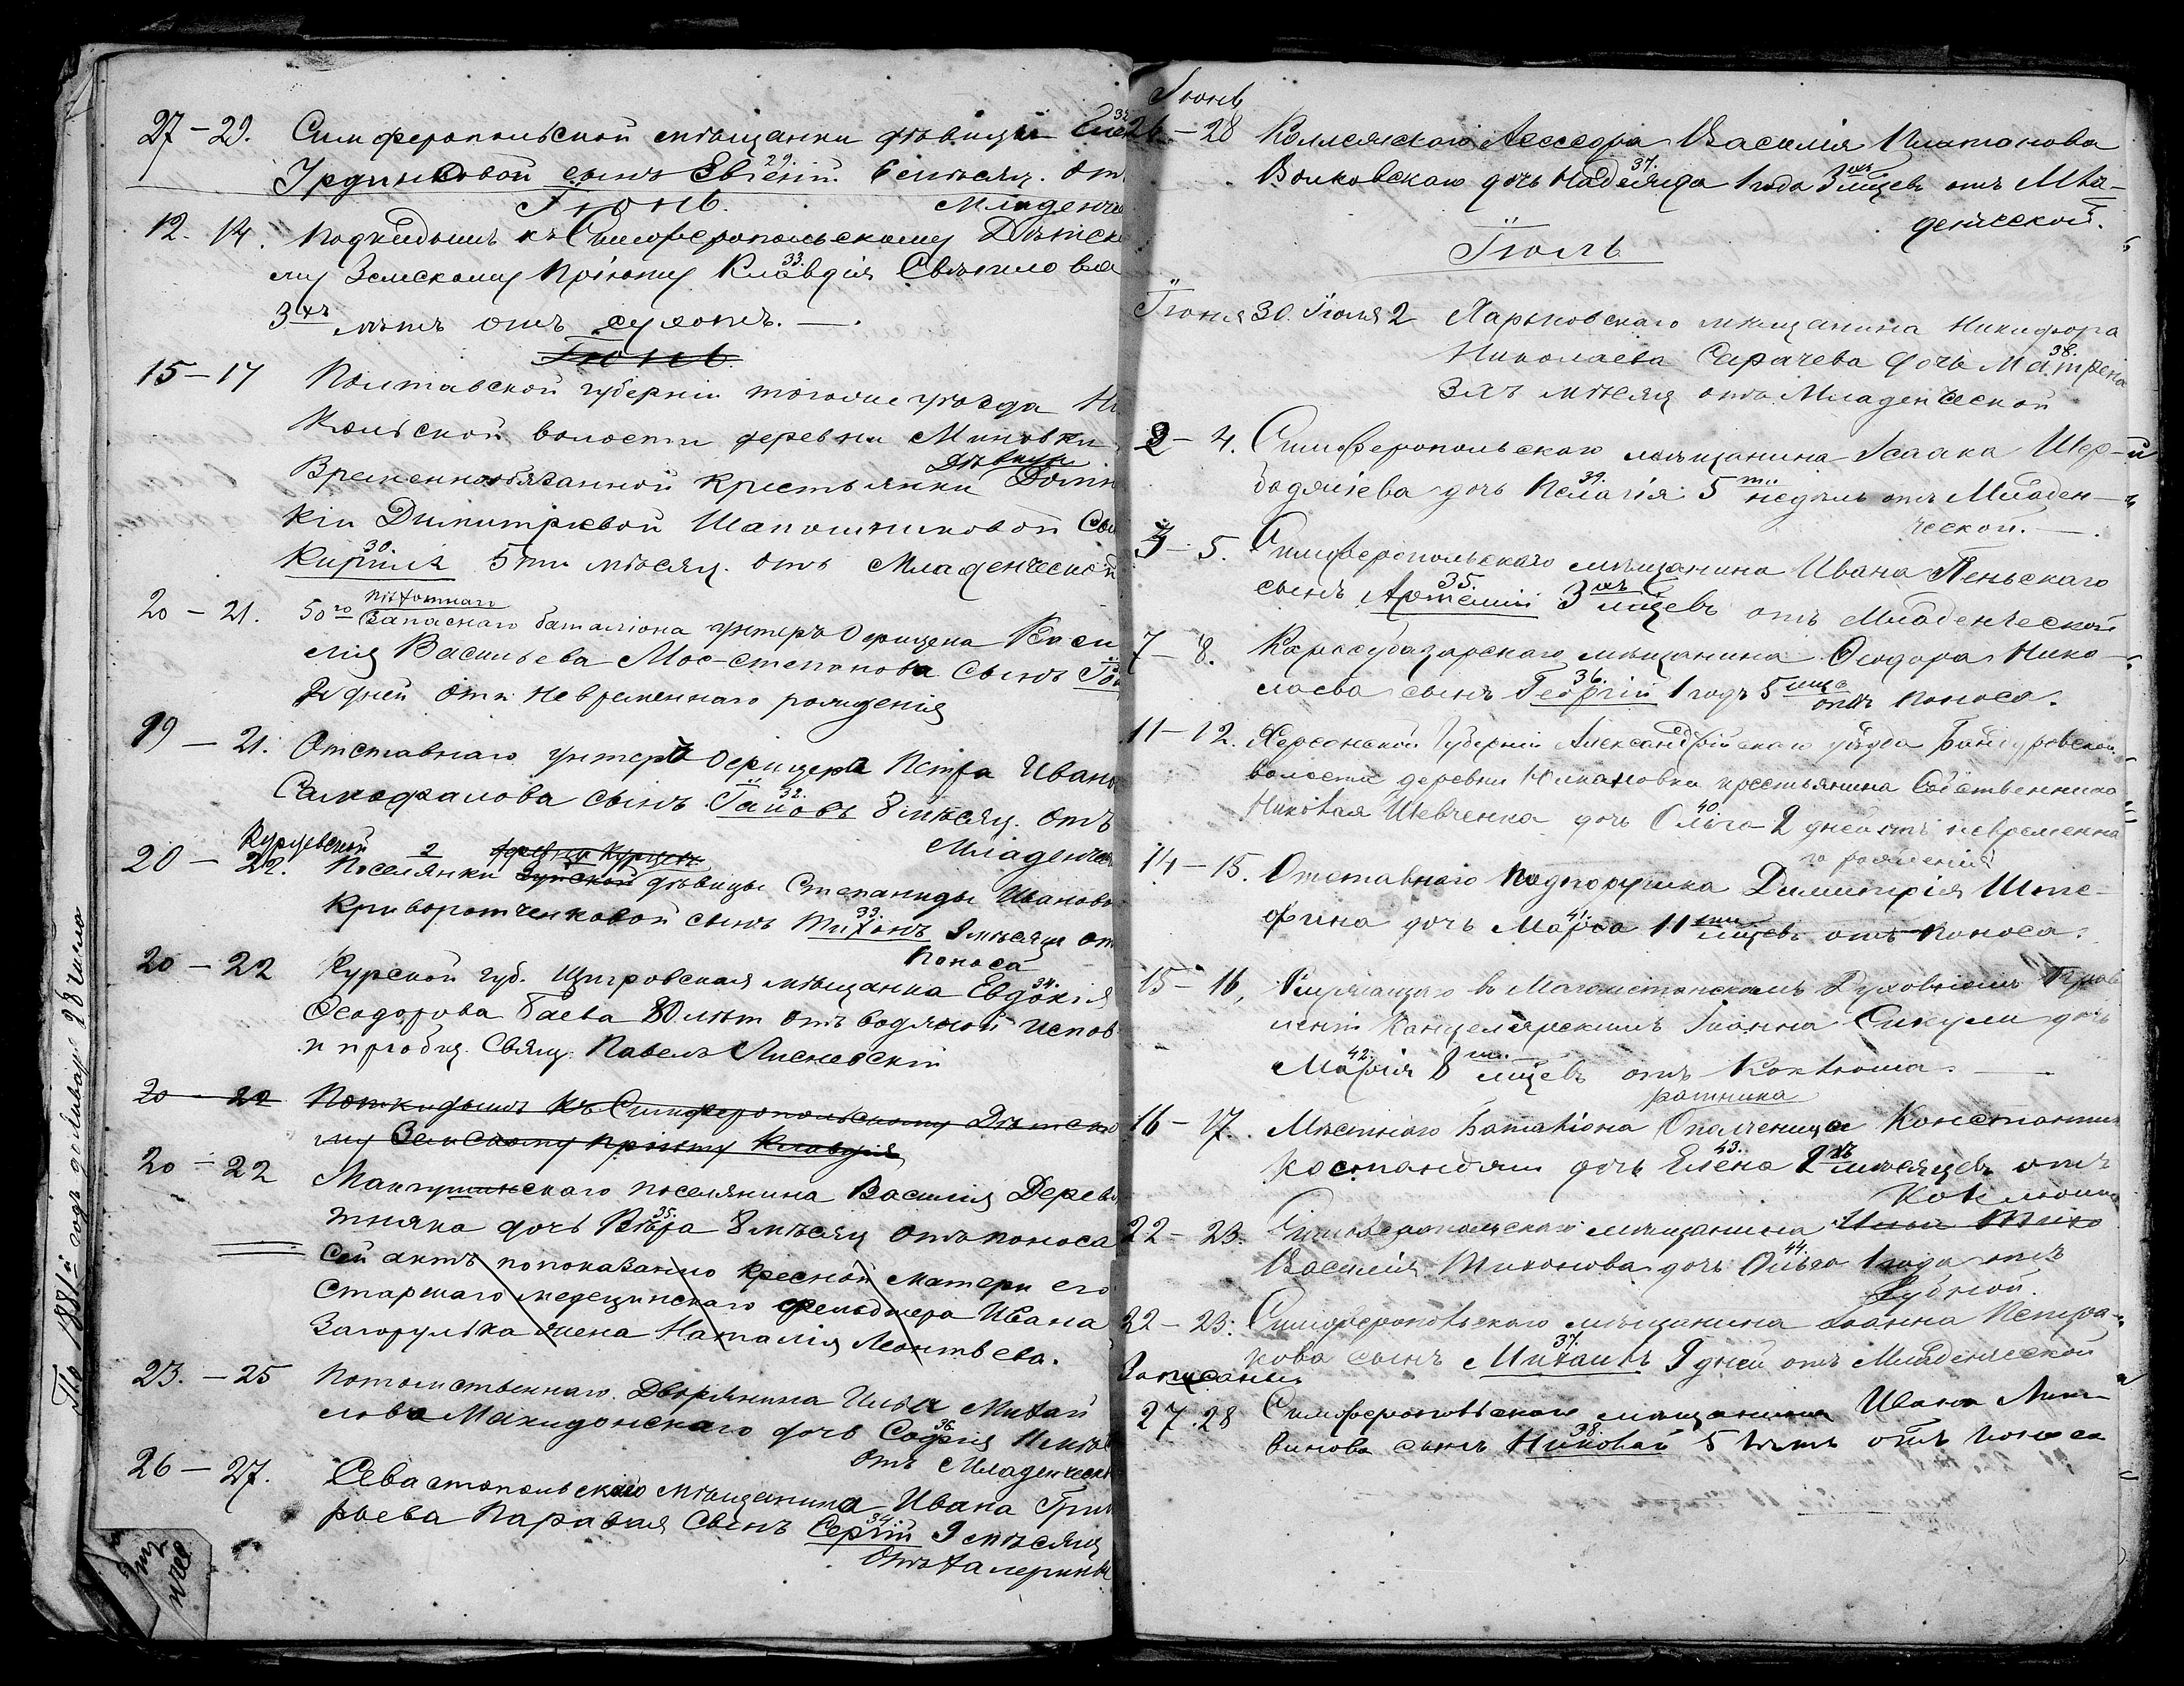 27 – 29. Симферопольской мѣщанки дѣвицы
сынъ Евгеній 29. 6 мѣсяц. отъ
Іюнь. Младенче
12. 14. Подкидышъ къ Симферопольскому Дѣтск
му Земскому Пріюту Клавдія 33. Свѣтилова
3хъ лѣтъ отъ сухот. —.
Іюнь.
15 – 17 Полтавской губерніи того же уѣзда
волости деревни Миновки
Дѣвицы
Временнообязанной крестьянки
кіи Димитріевой Шапошниковой Сы
Кирилъ 30. 5ти мѣсяц. отъ Младенческой
20 – 21. 50го Запаснаго баталіона унтеръ Офицера Васи
лія Васильева Мос-степанова сынъ
дней отъ Невременнаго рожденія
19 – 21. Отставнаго унтеръ Офицера Петра Ивано
Самофалова сынъ Іаковъ 32. 8 мѣсяц. отъ
Младенчес
Курцевской деревни Курцевъ
20 – 22. Поселянки дѣвицы Степаниды Иванов
Криворотченковой сынъ Тихонъ 33. 9 мѣсяц от
Поноса
20 – 22 Курской губ. Щигровская мѣщанка Евдокія 34.
Ѳеодорова Баева 80 лѣт отъ водяной испов
и пріобщ. Свящ. Павелъ
20 – 22 Подкидышъ къ Симферопольскому Дѣтско
му Земскому пріюту Клавдія
20 – 22 Мангушскаго поселянина Василія Дерев
тняка дочь Вѣра 35. 8 мѣсяц отъ поноса
Сей актъ по показанію крестной матери его
старшаго медецинскаго фельдшера Ивана
Загорулька жена Наталія Леонтьева.
23. – 25 Потомственнаго Дворянина Ильи Михай
лова Македонскаго дочь Софія 36.
отъ Младенческ
26 – 27. Севастопольскаго мѣщанина Ивана Григ
рьева сынъ Сергій 34. 9 мѣсяц
отъ
По 1881й годъ декабря 28 числа
Іюнь
26 – 28 Коллежскаго Ассесора Василія Платонова
Волковскаго дочь Надежда 37. 1 года 3хъ мцевъ отъ Мла-
денческой.
Іюль
Іюня 30. Іюля 2 Харьковскаго мѣщанина Никифора
Николаева дочь Матрена 38.
3хъ мѣсяц отъ Младенческой
2 – 4. Симферопольскаго мѣщанина Исаака
дочь Пелагія 39. 5ти недѣль отъ Младен-
ческой. —.
3 – 5. Симферопольскаго мѣщанина Ивана Пеньскаго
сынъ Артемій 35. 3хъ мцевъ отъ Младенческой
7 – 8. Карасубазарскаго мѣщанина Ѳеодора Нико-
лаева сынъ Георгій 36. 1 годъ 5 мцъ отъ Поноса.
11 – 12. Херсонской Губерніи Александрійскаго уѣзда
волости деревни крестьянина Собственника
Николая Шевченка дочь Ольга 40. 2 дней отъ невременна
го рожденія
14 – 15. Отставнаго Подпоручика Димитрія Ште-
фина дочь Марѳа 41. 11ти мцевъ отъ Поноса.
15 – 16, Служащаго въ Магометанскомъ Духовномъ Прав
леніи Канцелярскимъ Іоанна дочь
Марія 42. 8ми мцевъ отъ Коклюша. —
ратника
16 – 17. Мѣстнаго Баталіона Ополченца Константин
дочь Елена 43. 2хъ мѣсяцевъ отъ
Коклюша
22 – 23. Симферопольскаго мѣщанина
Василія Тихонова дочь Ольга 44. 1 года отъ
Зубной.
22 – 23. Симферопольскаго мѣщанина Іоанна
кова сынъ Михаилъ 37. 9 дней отъ Младенческой
Записаны
27. 28 Симферопольскаго мѣщанина Ивана Лит-
винова сынъ Николай 38. 5 лѣтъ отъ Поноса